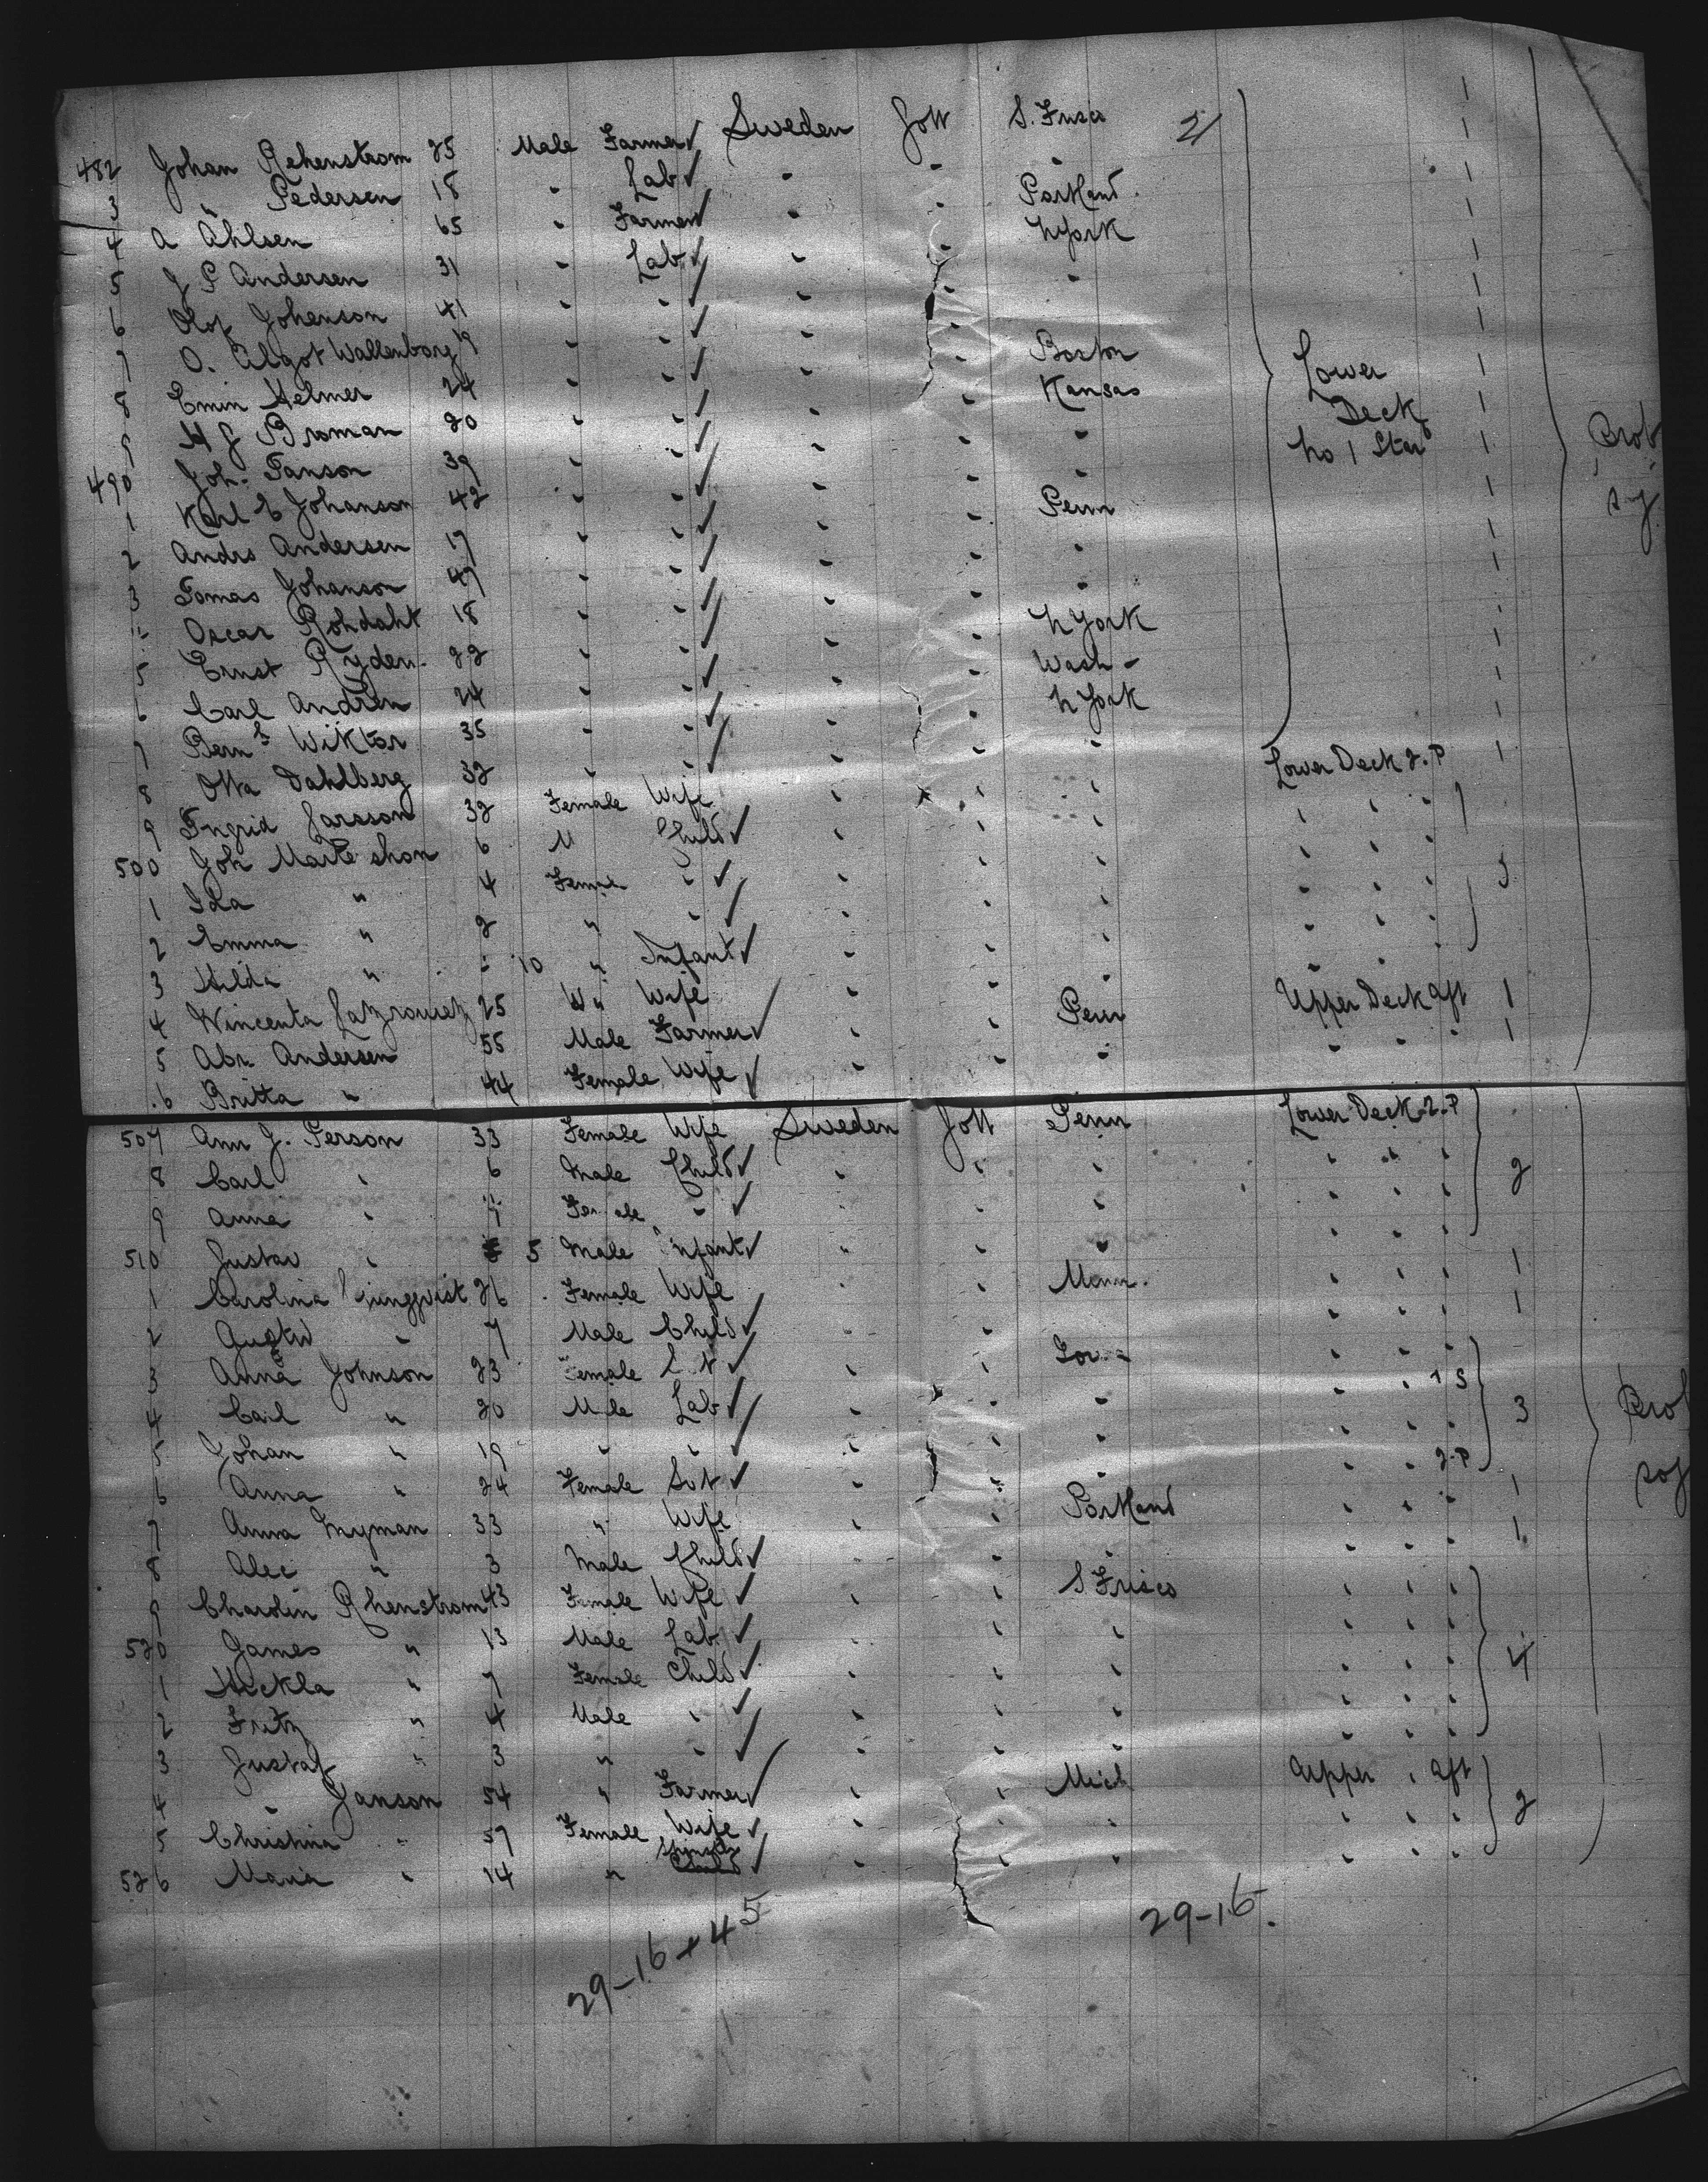 482 Johan Rehenstrom 25 Male Farmer ✓ Sweden Gott S. Frisco 21
3 " Pedersen 18 " Lab ✓ " " "
4 A Åhlsen 65 " Farmer ✓ " " Portland
5 J P Andersen 31 " Lab ✓ " " N York
6 Olof Johenson 41 " " ✓ " " "
7 O. Algot Wallenborg 19 " " ✓ " "
8 Emin Helmer 24 " " ✓ " " Boston Lower
9 H J Broman 20 " " ✓ " " Kansas Deck
490 Joh. Janson 39 " " ✓ " " " No 1 Star
1 Karl E Johanson 42 " " ✓ " " "
2 Andrs Andersen 17 " " ✓ " " Penn
3 Tomas Johanson 47 " " ✓ " " "
Oscar Rohdahl 18 " " ✓ " " "
5 Ernst Ryden 22 " " ✓ " " N York
6 Carl Andrén 24 " " ✓ " " Wash
7 Bernh Wiktor 35 " " ✓ " " N York
8 Otta Dahlberg 32 " " ✓ " " "
9 Ingrid Larsson 32 Female Wife " " " Lower Deck 2.P 1
500 Joh 6 M Child ✓ " " " " " "
1 Ida " 4 Female " ✓ " " " " " " 3
2 Emma " 2 " " ✓ " " " " " "
3 Hilda " 10 " Infant ✓ " " " " " "
4 Wincenta 25 " Wife " " " Upper Deck Aft 1
5 Abr. Andersen 55 Male Farmer ✓ " " Penn " " " 1
6 Britta " 44 Female Wife ✓ " " "
507 Ann J. Person 33 Female Wife Sweden Gott Penn Lower Deck 2-P
8 Carl " 6 Male Child ✓ " " " " " " 2
9 Anna " 4 Female " ✓ " " " " " "
510 Gustav " 5 Male Infant ✓ " " " " " "
1 Carolina Ljungqvist 26 Female Wife " Minn. " " " 1
2 Gustav " 7 Male Child ✓ " " " " " 1
3 Anna Johnson 23 Female ✓ " " Iowa " " "
4 Carl " 20 Male Lab ✓ " " " " " 1 S 3
5 Johan " 19 " " ✓ " " " " " "
6 Anna " 24 Female Svt ✓ " " " " " 2-P
7 Anna Nyman 33 " Wife " " Portland " " " 1
8 Alec " 3 Male Child ✓ " " " " " 1
9 Charolin Rhenstrom 43 Female Wife ✓ " " S Frisco " " "
520 James " 13 Male Lab ✓ " " " " " "
1 Heckla " 7 Female Child ✓ " " " " " " 4
2 Fritz " 4 Male " ✓ " " " " " "
3 Gustaf " 3 " " ✓ " " " " " "
4 " Janson 54 " Farmer ✓ " " Mich Upper " Aft
5 Christina " 59 Female Wife ✓ " " " " " " 2
526 Maria " 14 " Spinster ✓ " " " " " "
29-16+45
29-16.